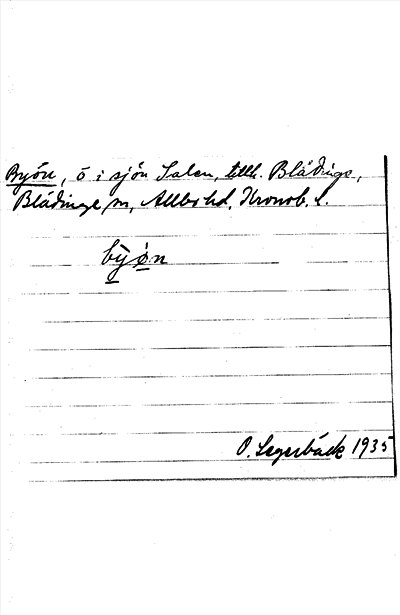 Byön, ö i sjön Salen, tillh. Blädinge,
Blädinge sn, Allbo hd, Kronob. l.
byön
O. Segerbäck 1935